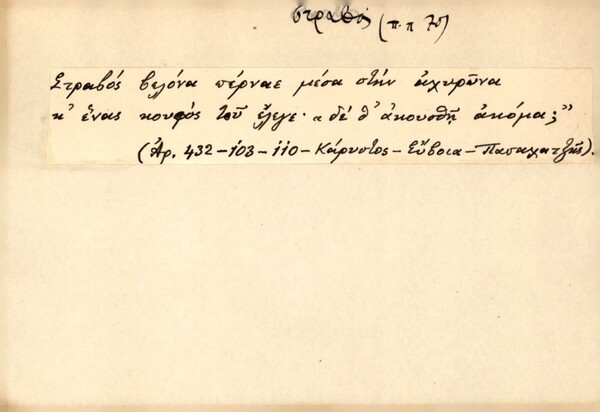 στραβός (π.π 75)
Στραβός βελόνα πέρναε μέσα στήν ἀχυρῶνα
κ' ἕνας κουφός τοῦ ἔλεγε· « δέ θ' ἀκουσθῇ ἀκόμα; »
(Ἀρ. 432 – 103 – 110 – Κάρυστος – Εὔβοια – Παπαχατζῆς).